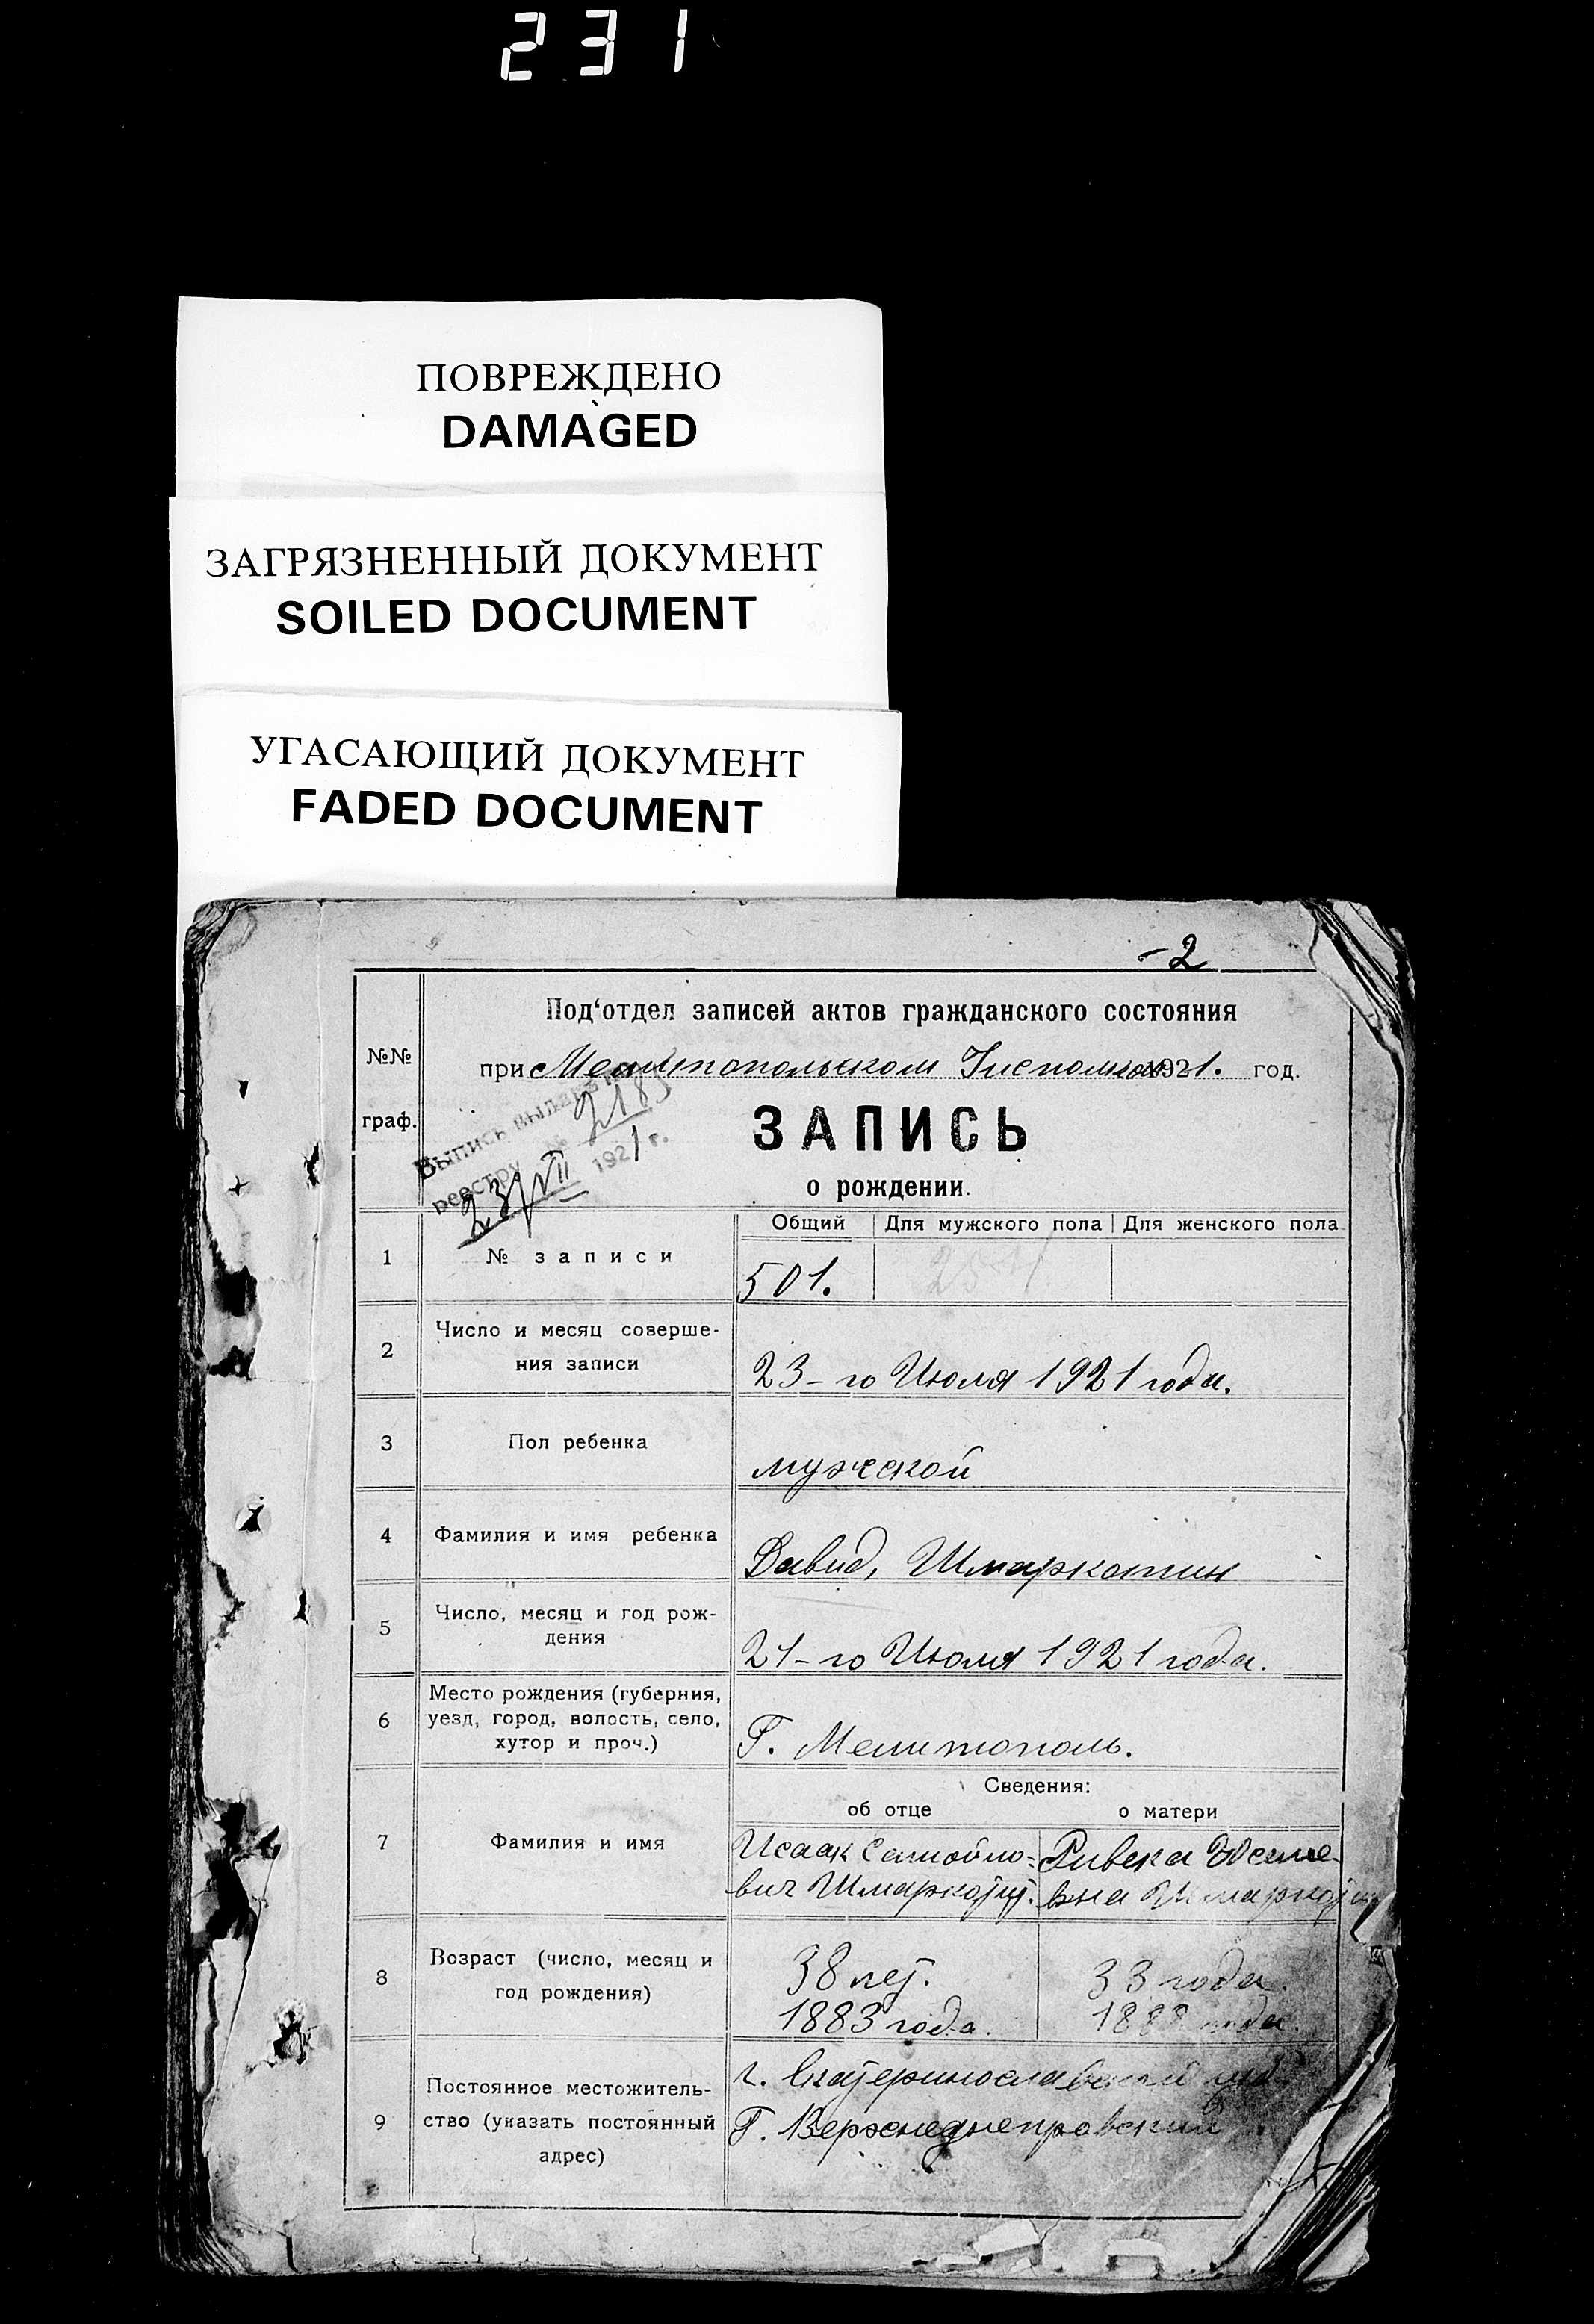 231
ПОВРЕЖДЕНО
DAMAGED
ЗАГРЯЗНЕННЫЙ ДОКУМЕНТ
SOILED DOCUMENT
УГАСАЮЩИЙ ДОКУМЕНТ
FADED DOCUMENT
-2
Под‘отдел записей актов гражданского состояния
№№ граф.
при Мелитопольском 1921. год.
Выпись выдана
реестру № 2183
23/VII 1921 г.
ЗАПИСЬ
о рождении.
Общий Для мужского пола Для женского пола
1 № записи 501. 254
2 Число и месяц соверше-
ния записи 23-го Июля 1921 года.
3 Пол ребенка мужской
4 Фамилия и имя ребенка Давид, Шмаркатин
5 Число, месяц и год рож-
дения 21-го Июля 1921 года.
6 Место рождения (губерния,
уезд, город, волость, село,
хутор и проч.) Г. Мелитополь.
Сведения:
об отце о матери
7 Фамилия и имя Исаак Самойло= Ривека
вич вна
8 Возраст (число, месяц и
год рождения)
38 лет. 33 года.
1883 года. 1888 года.
9 Постоянное местожитель-
ство (указать постоянный
адрес)
г. Екатеринославской
Г. Верхнеднепровский